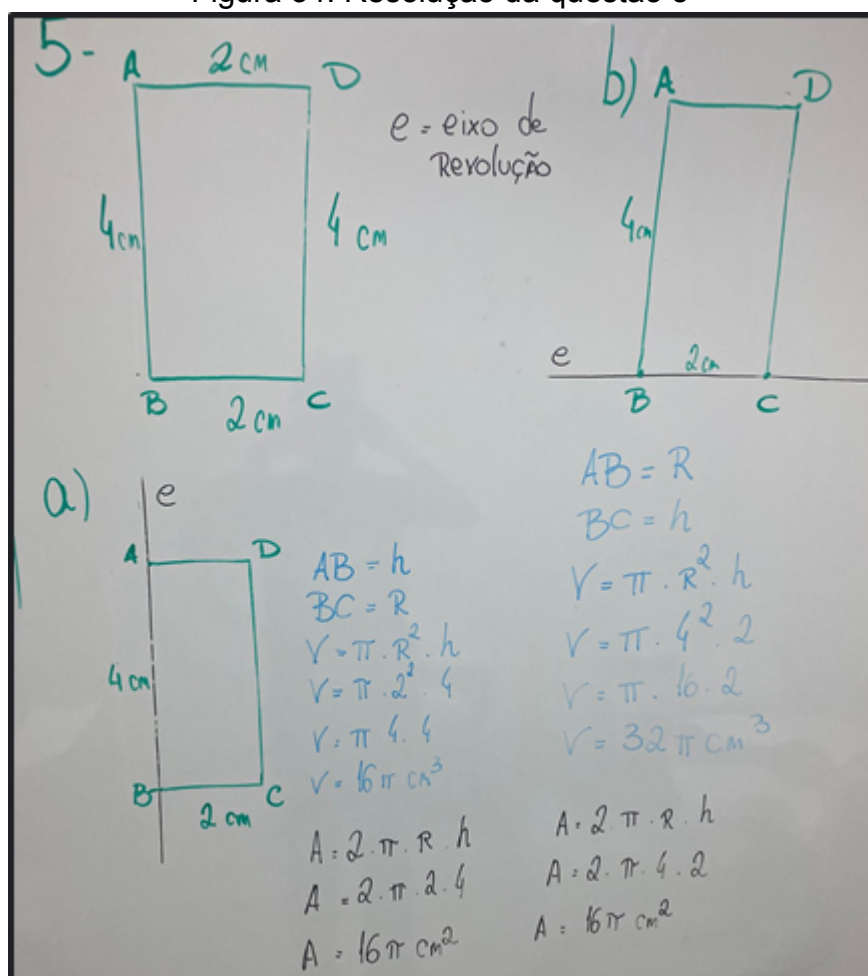 5-
A 2 cm D
4 cm
4 cm
B 2 cm C
e = eixo de
Revolução
b) A D
4 cm
e
2 cm
B C
a) e
A D
4 cm
B C
2 cm
AB = h
BC = R
V = π . R² . h
V = π . 2² . 4
V = π 4 . 4
V = 16 π cm³
A = 2 . π . R . h
A = 2 . π . 2 . 4
A = 16 π cm²
AB = R
BC = h
V = π . R² . h
V = π . 4² . 2
V = π . 16 . 2
V = 32 π cm³
A = 2 . π . R . h
A = 2 . π . 4 . 2
A = 16 π cm²